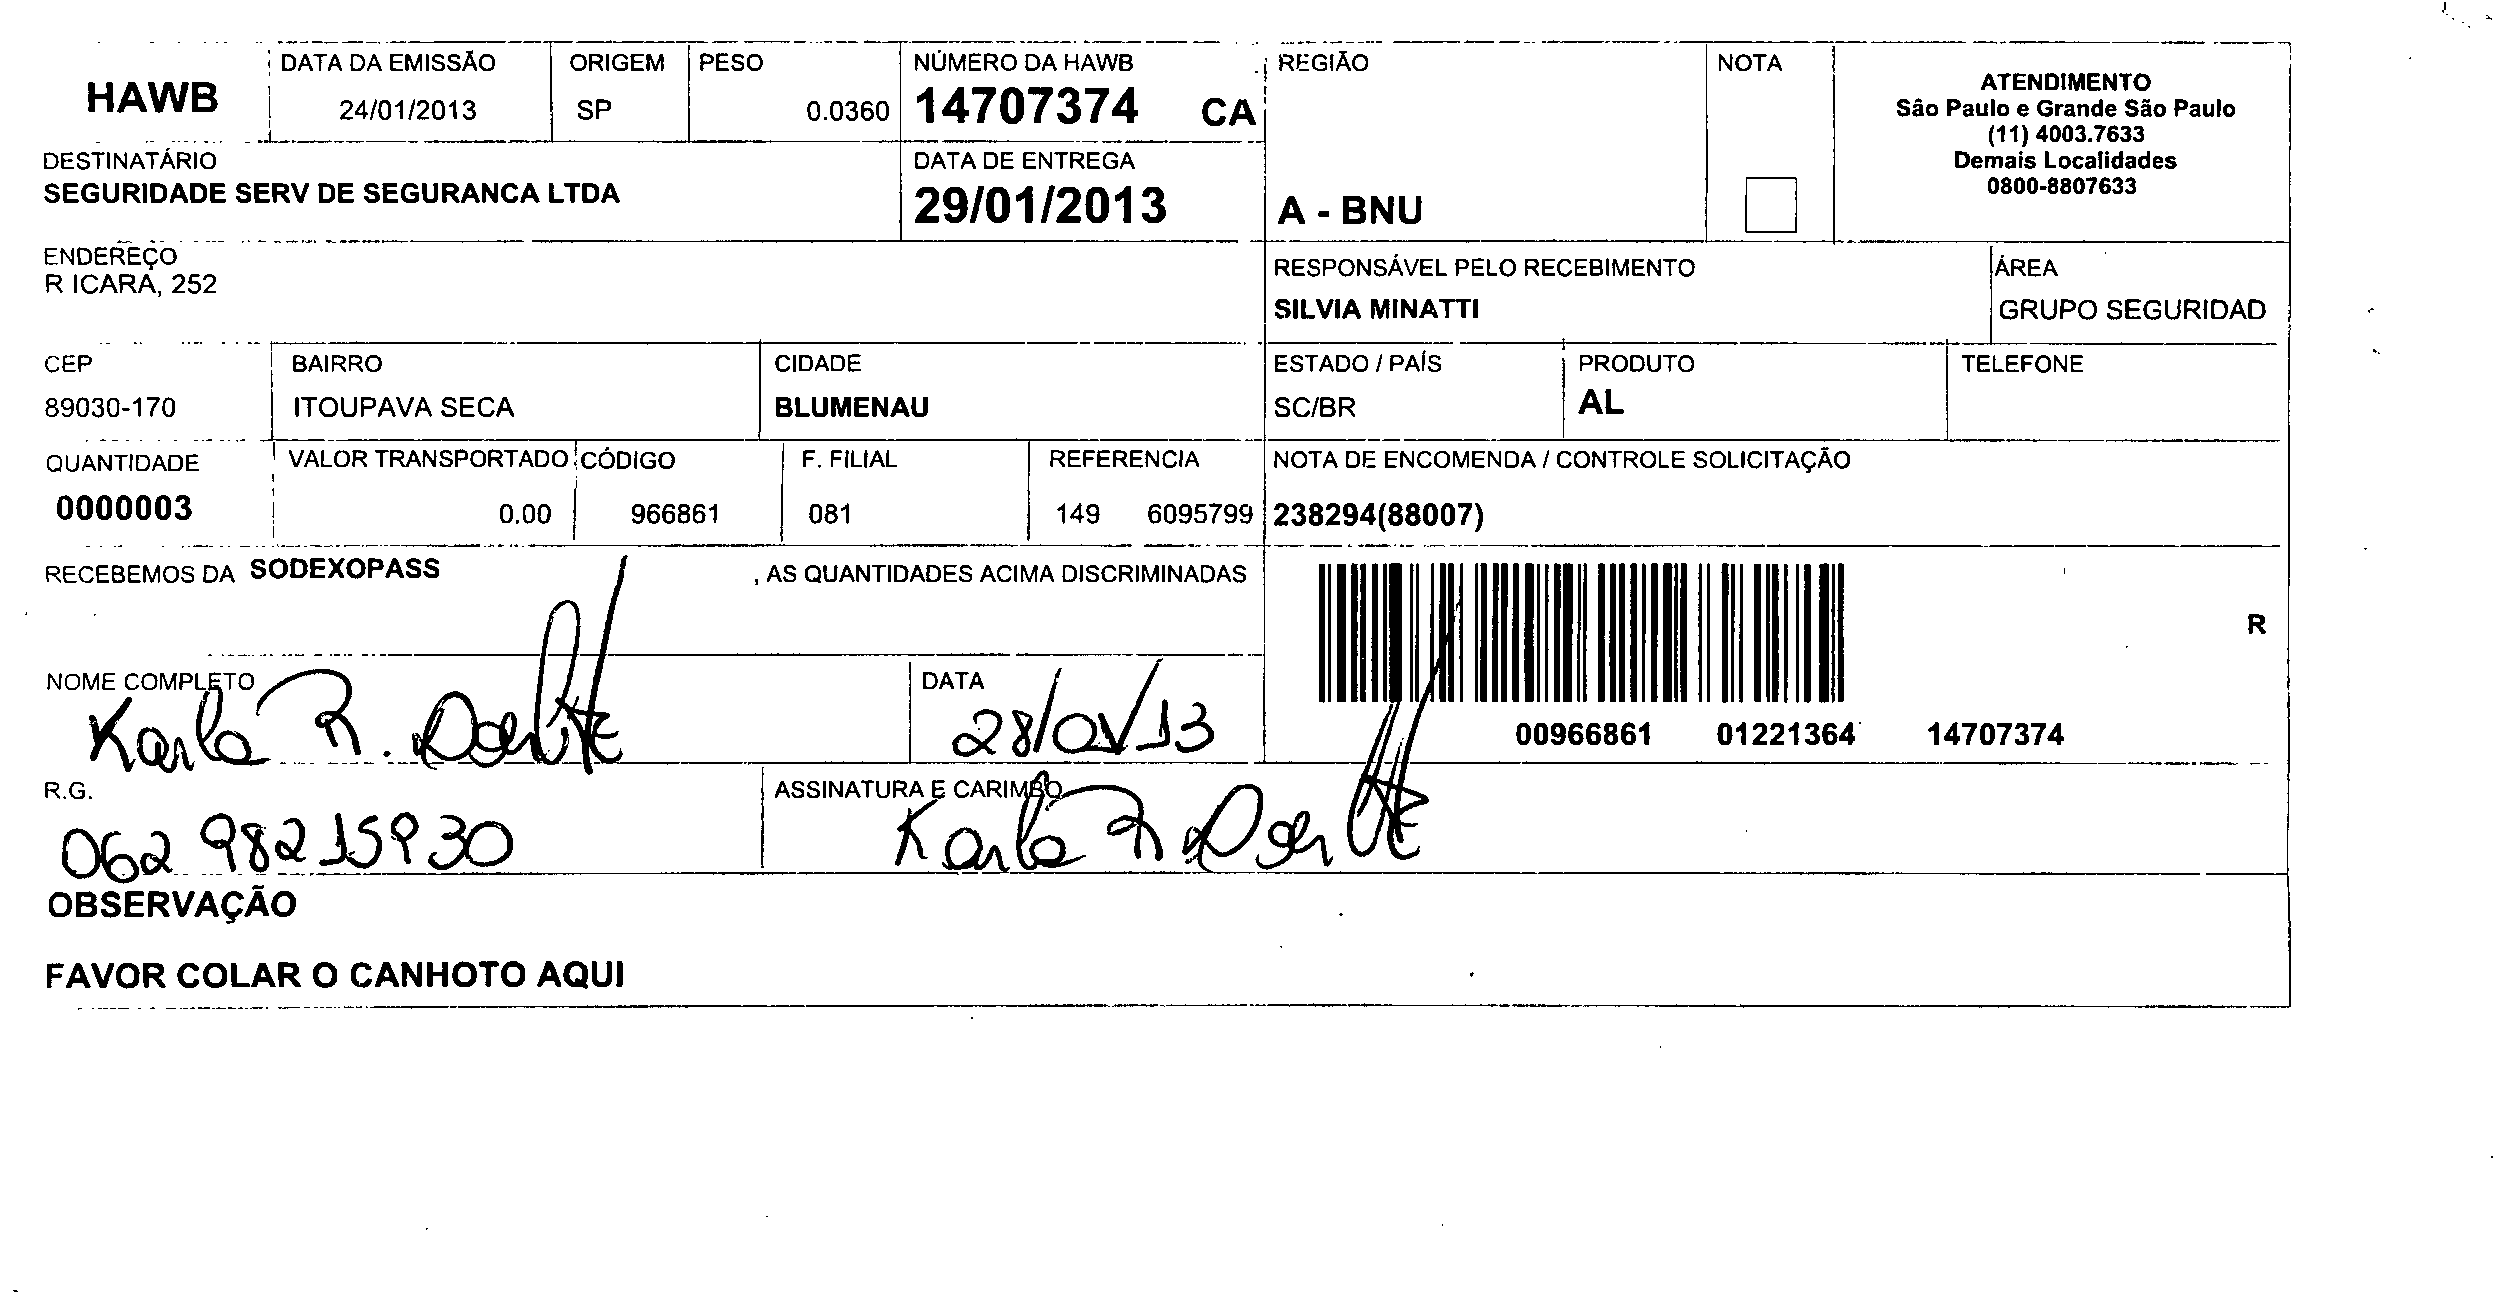 HAWB
DATA DA EMISSÃO
24/01/2013
ORIGEM
SP
PESO
0.0360
NÚMERO DA HAWB
14707374 CA
REGIÃO
A - BNU
NOTA
ATENDIMENTO
São Paulo e Grande São Paulo
(11) 4003.7633
Demais Localidades
0800-8807633
DESTINATÁRIO
SEGURIDADE SERV DE SEGURANCA LTDA
DATA DE ENTREGA
29/01/2013
ENDEREÇO
R ICARA, 252
RESPONSÁVEL PELO RECEBIMENTO
SILVIA MINATTI
ÁREA
GRUPO SEGURIDAD
CEP
89030-170
BAIRRO
ITOUPAVA SECA
CIDADE
BLUMENAU
ESTADO / PAÍS
SC/BR
PRODUTO
AL
TELEFONE
QUANTIDADE
0000003
VALOR TRANSPORTADO
0.00
CÓDIGO
966861
F. FILIAL
081
REFERENCIA
149 6095799
NOTA DE ENCOMENDA / CONTROLE SOLICITAÇÃO
238294(88007)
RECEBEMOS DA SODEXOPASS , AS QUANTIDADES ACIMA DISCRIMINADAS
R
00966861 01221364 14707374
NOME COMPLETO
Karla R.
DATA
28/01/13
R.G.
062 98215930
ASSINATURA E CARIMBO
Karla R
OBSERVAÇÃO
FAVOR COLAR O CANHOTO AQUI